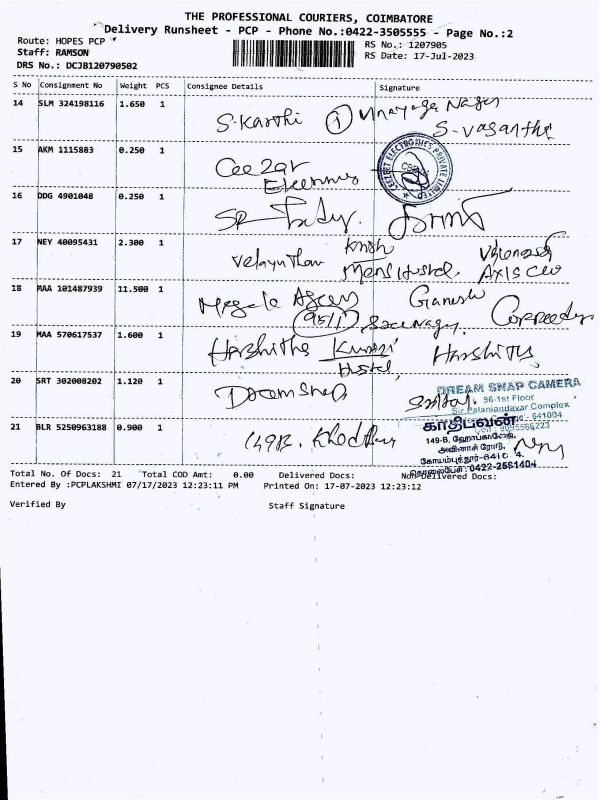 THE PROFESSIONAL COURIERS, COIMBATORE
Delivery Runsheet - PCP - Phone No.:0422-3505555 - Page No.:2
Route: HOPES PCP
RS No.: 1207905
Staff: RAMSON
RS Date: 17-Jul-2023
DRS No.: DCJB120790502
S No Consignment No Weight PCS Consignee Details Signature
14 SLM 324198116 1.650 1
S. Karthi 1 Vinayaga Nagar
S. Vasantha
15 AKM 1115883 0.250 1
Ceezet
CEEZEET ELECTRONICS PRIVATE LIMITED
16 DDG 4901048 0.250 1
SR
17 NEY 40095431 2.300 1
Velayuthan Krish
Mens Hostel.
18 MAA 101487939 11.500 1
Agency Ganesh
19 MAA 570617537 1.600 1
Harshitha Hostel,
20 SRT 302008202 1.120 1
Dream Snap
DREAM SNAP CAMERA
96-1st Floor
Sir Palaniandavar Complex
641004
21 BLR 5250963188 0.900 1
149B.
காதிபவன்
149-B, ஹோப்காலேஜ்,
அவினாசி ரோடு,
கோயம்புத்தூர்-641004.
தொலைபேசி: 0422-2581404
Total No. Of Docs: 21 Total COD Amt: 0.00 Delivered Docs: Non-Delivered Docs:
Entered By :PCPLAKSHMI 07/17/2023 12:23:11 PM Printed On: 17-07-2023 12:23:12
Verified By Staff Signature